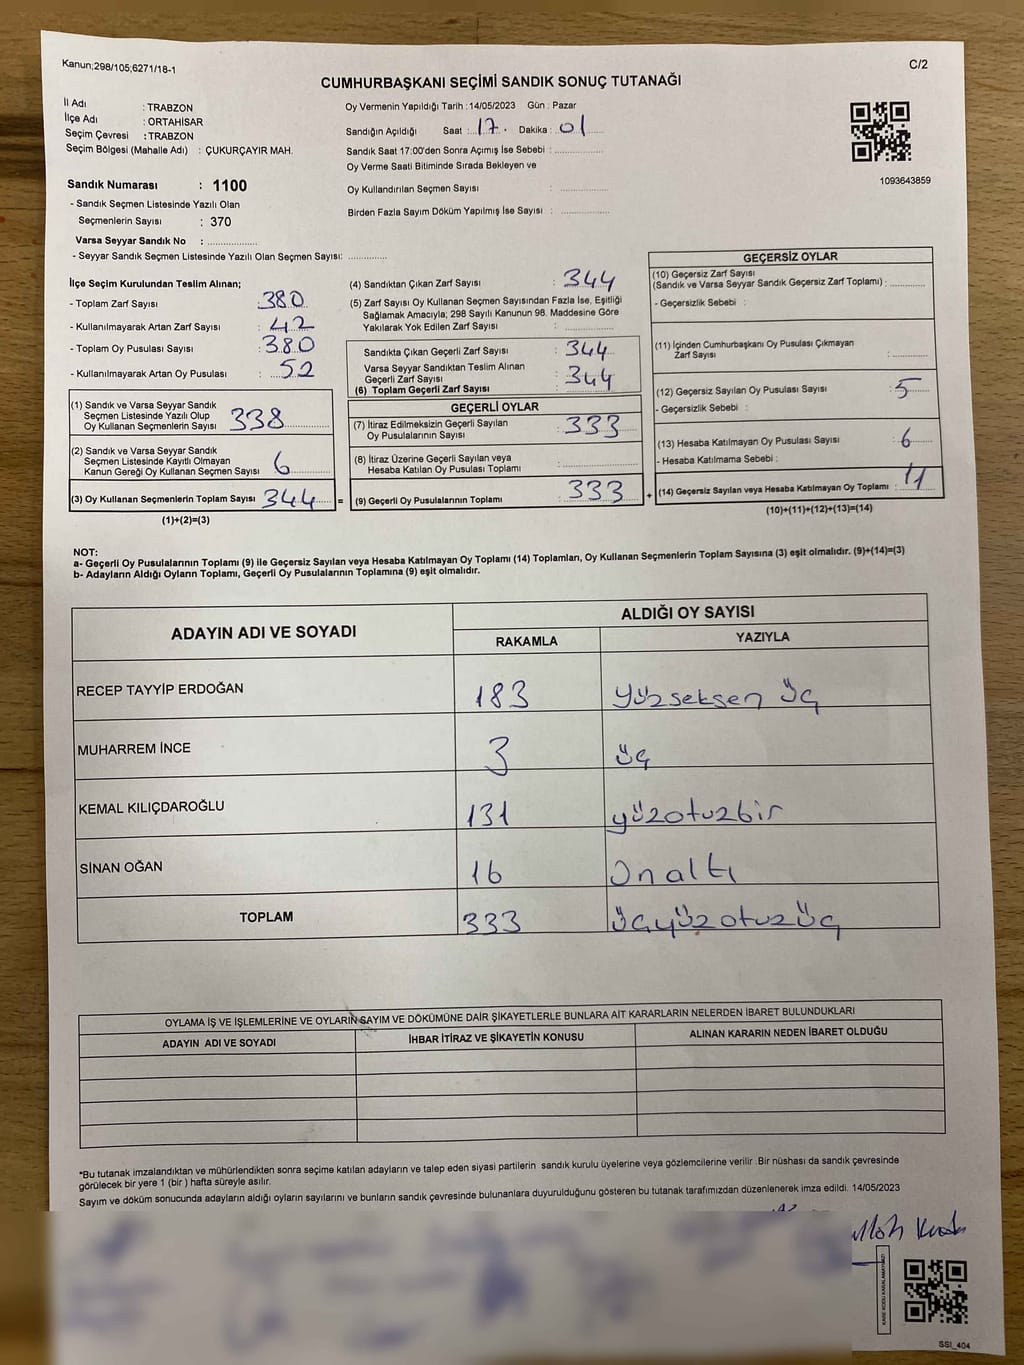 Kanun;298/105;6271/18-1
C/2
CUMHURBAŞKANI SEÇİMİ SANDIK SONUÇ TUTANAĞI
İl Adı : TRABZON
İlçe Adı : ORTAHİSAR
Seçim Çevresi : TRABZON
Seçim Bölgesi (Mahalle Adı) : ÇUKURÇAYIR MAH.
Oy Vermenin Yapıldığı Tarih : 14/05/2023 Gün : Pazar
Sandığın Açıldığı Saat : 17. Dakika : 01
Sandık Saat 17:00'den Sonra Açımış İse Sebebi :
Oy Verme Saati Bitiminde Sırada Bekleyen ve
Oy Kullandırılan Seçmen Sayısı :
Birden Fazla Sayım Döküm Yapılmış İse Sayısı :
1093643859
Sandık Numarası : 1100
- Sandık Seçmen Listesinde Yazılı Olan
Seçmenlerin Sayısı : 370
Varsa Seyyar Sandık No :
- Seyyar Sandık Seçmen Listesinde Yazılı Olan Seçmen Sayısı:
İlçe Seçim Kurulundan Teslim Alınan;
- Toplam Zarf Sayısı : 380
- Kullanılmayarak Artan Zarf Sayısı : 42
- Toplam Oy Pusulası Sayısı : 380
- Kullanılmayarak Artan Oy Pusulası : 52
(1) Sandık ve Varsa Seyyar Sandık
Seçmen Listesinde Yazılı Olup
Oy Kullanan Seçmenlerin Sayısı 338
(2) Sandık ve Varsa Seyyar Sandık
Seçmen Listesinde Kayıtlı Olmayan
Kanun Gereği Oy Kullanan Seçmen Sayısı 6
(3) Oy Kullanan Seçmenlerin Toplam Sayısı 344 =
(1)+(2)=(3)
(4) Sandıktan Çıkan Zarf Sayısı : 344
(5) Zarf Sayısı Oy Kullanan Seçmen Sayısından Fazla İse, Eşitliği
Sağlamak Amacıyla; 298 Sayılı Kanunun 98. Maddesine Göre
Yakılarak Yok Edilen Zarf Sayısı :
Sandıkta Çıkan Geçerli Zarf Sayısı : 344
Varsa Seyyar Sandıktan Teslim Alınan
Geçerli Zarf Sayısı
(6) Toplam Geçerli Zarf Sayısı : 344
GEÇERLİ OYLAR
(7) İtiraz Edilmeksizin Geçerli Sayılan
Oy Pusulalarının Sayısı : 333
(8) İtiraz Üzerine Geçerli Sayılan veya
Hesaba Katılan Oy Pusulası Toplamı :
(9) Geçerli Oy Pusulalarının Toplamı : 333 +
GEÇERSİZ OYLAR
(10) Geçersiz Zarf Sayısı
(Sandık ve Varsa Seyyar Sandık Geçersiz Zarf Toplamı) :
- Geçersizlik Sebebi :
(11) İçinden Cumhurbaşkanı Oy Pusulası Çıkmayan
Zarf Sayısı :
(12) Geçersiz Sayılan Oy Pusulası Sayısı : 5
- Geçersizlik Sebebi :
(13) Hesaba Katılmayan Oy Pusulası Sayısı : 6
- Hesaba Katılmama Sebebi :
(14) Geçersiz Sayılan veya Hesaba Katılmayan Oy Toplamı : 11
(10)+(11)+(12)+(13)=(14)
NOT:
a- Geçerli Oy Pusulalarının Toplamı (9) ile Geçersiz Sayılan veya Hesaba Katılmayan Oy Toplamı (14) Toplamları, Oy Kullanan Seçmenlerin Toplam Sayısına (3) eşit olmalıdır. (9)+(14)=(3)
b- Adayların Aldığı Oyların Toplamı, Geçerli Oy Pusulalarının Toplamına (9) eşit olmalıdır.
ADAYIN ADI VE SOYADI
ALDIĞI OY SAYISI
RAKAMLA YAZIYLA
RECEP TAYYİP ERDOĞAN 183 yüzseksen üç
MUHARREM İNCE 3 üç
KEMAL KILIÇDAROĞLU 131 yüzotuzbir
SİNAN OĞAN 16 onaltı
TOPLAM 333 üçyüzotuzüç
OYLAMA İŞ VE İŞLEMLERİNE VE OYLARIN SAYIM VE DÖKÜMÜNE DAİR ŞİKAYETLERLE BUNLARA AİT KARARLARIN NELERDEN İBARET BULUNDUKLARI
ADAYIN ADI VE SOYADI İHBAR İTİRAZ VE ŞİKAYETİN KONUSU ALINAN KARARIN NEDEN İBARET OLDUĞU
*Bu tutanak imzalandıktan ve mühürlendikten sonra seçime katılan adayların ve talep eden siyasi partilerin sandık kurulu üyelerine veya gözlemcilerine verilir. Bir nüshası da sandık çevresinde
görülecek bir yere 1 (bir) hafta süreyle asılır.
Sayım ve döküm sonucunda adayların aldığı oyların sayılarını ve bunların sandık çevresinde bulunanlara duyurulduğunu gösteren bu tutanak tarafımızdan düzenlenerek imza edildi. 14/05/2023
SSI_404